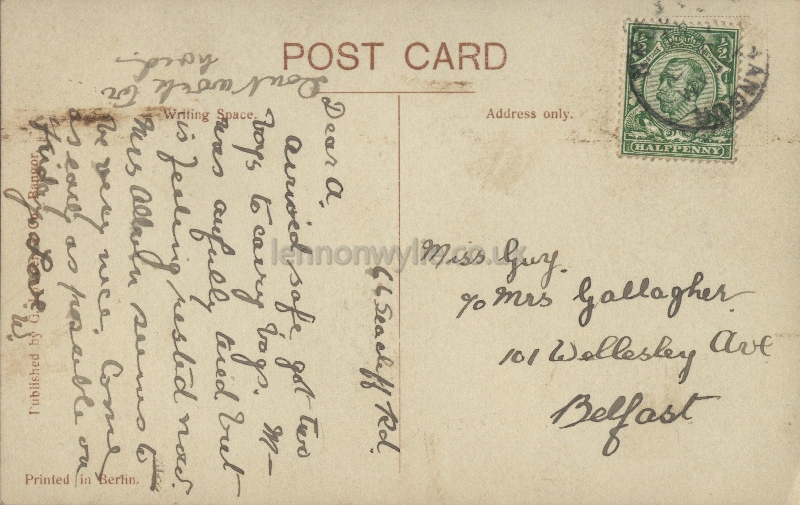 POST CARD
Writing Space.
Address only.
HALFPENNY
BANGOR
64 Seacliff Rd.
Dear A.
Arrived safe, got two
boys to carry bags. M—
was awfully tired but
is feeling rested now.
Mrs Allen seems to
be very nice. Come
as early as possible on
Friday. Love
W.
Dont work too
hard.
Miss Guy.
c/o Mrs Gallagher
101 Wellesley Ave
Belfast
Published by G.
Bangor
Printed in Berlin.
lennonwylie.co.uk